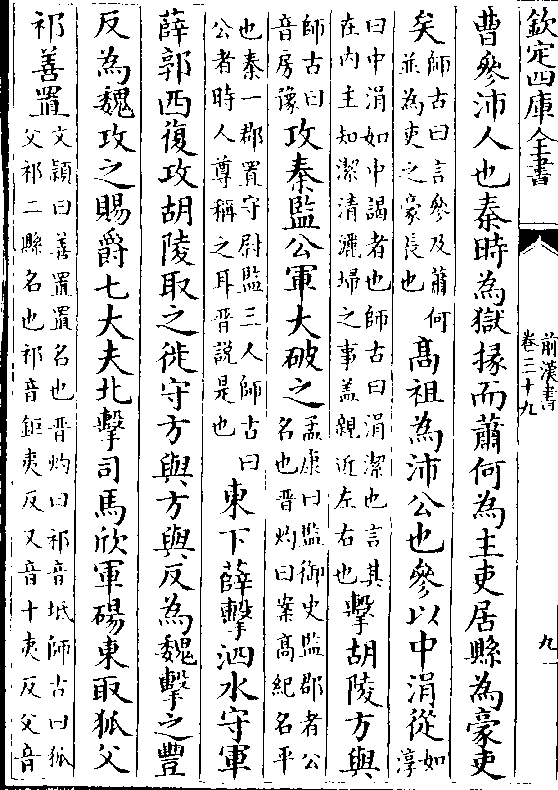 欽定四庫全書
前漢書
卷三十九
九
曹參沛人也秦時為獄掾而蕭何為主吏居縣為豪吏
矣師古曰言參及蕭何並為吏之豪長也髙祖為沛公也參以中涓從如淳
曰中涓如中謁者也師古曰涓潔也言其在内主知潔清灑埽之事蓋親近左右也擊胡陵方與
師古曰音房豫攻秦監公軍大破之孟康曰監御史監郡者公名也晉灼曰案髙紀名平
也秦一郡置守尉監三人師古曰公者時人尊稱之耳晉説是也東下薛擊泗水守軍
薛郭西復攻胡陵取之徙守方與方與反為魏擊之豐
反為魏攻之賜爵七大夫北擊司馬欣軍碭東取狐父
祁善置文穎曰善置置名也晉灼曰祁音坻師古曰狐父祁二縣名也祁音鉅夷反又音十夷反父音